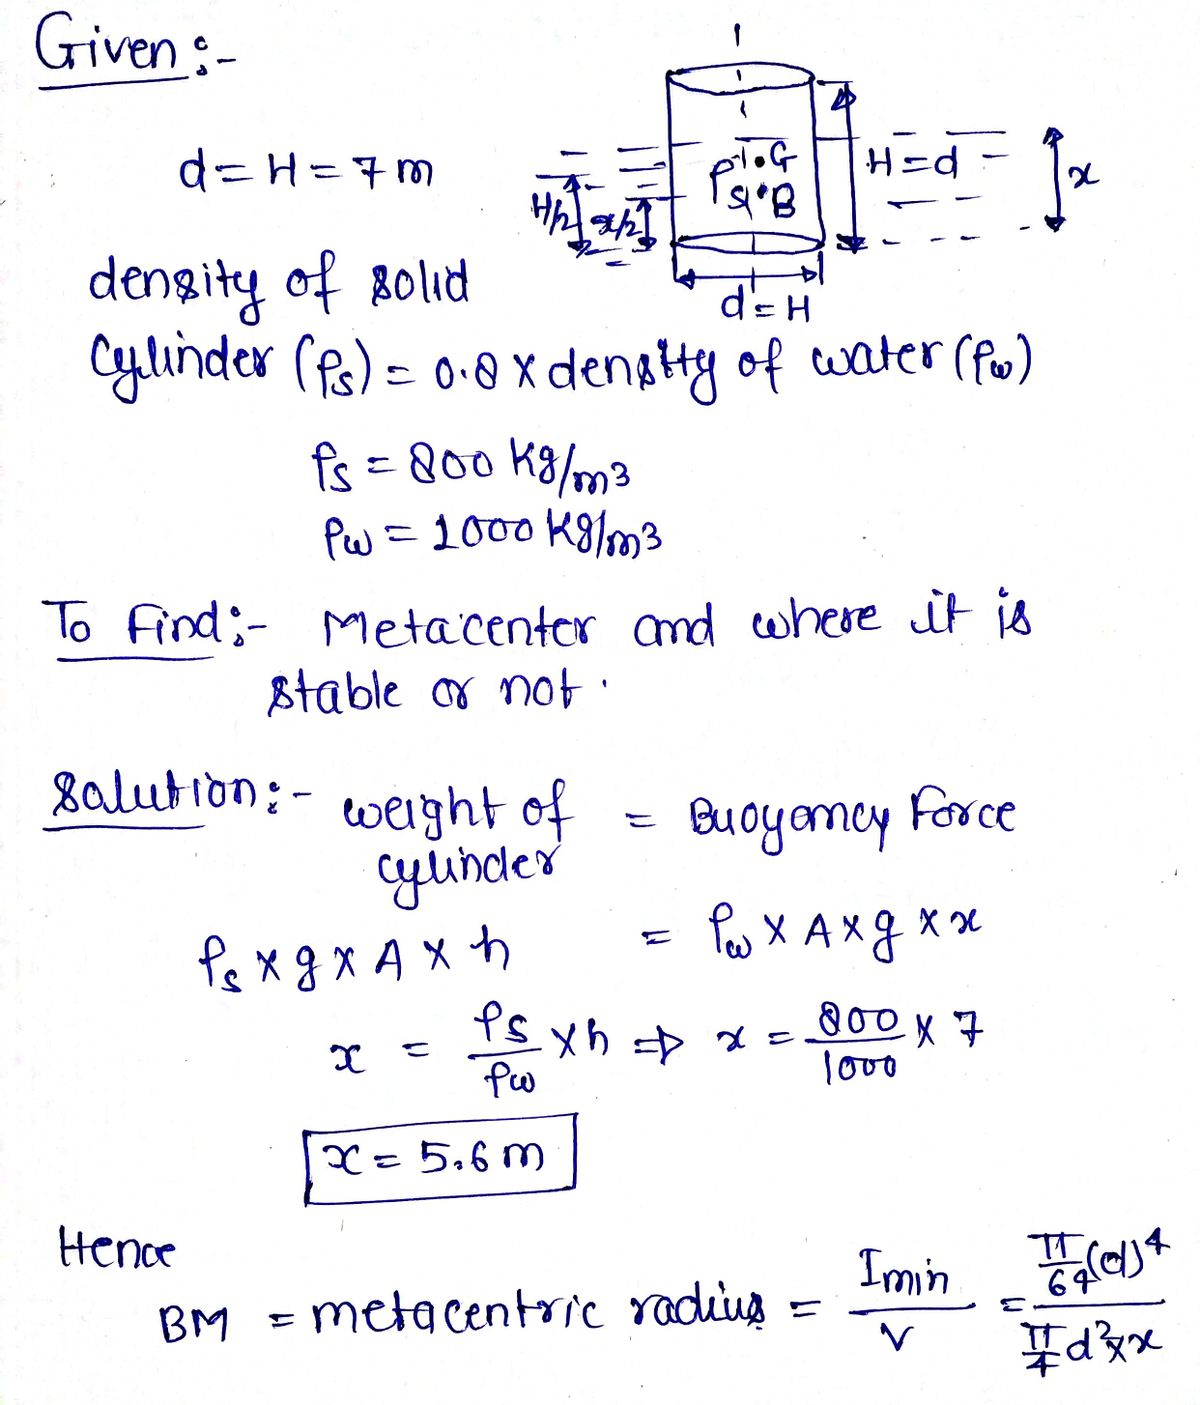 Given :-
d = H = 7 m
H/2
x/2
ρs
G
B
H = d
x
d = H
density of solid
Cylinder (ρs) = 0.8 × density of water (ρw)
ρs = 800 kg/m³
ρw = 1000 kg/m³
To find :- Metacenter and where it is
stable or not .
Solution :- weight of cylinder = Buoyancy Force
ρs × g × A × h = ρw × A × g × x
x = ρs/ρw × h ⇒ x = 800/1000 × 7
x = 5.6 m
Hence
BM = metacentric radius = Imin/V = π/64 (d)⁴ / π/4 d² × x